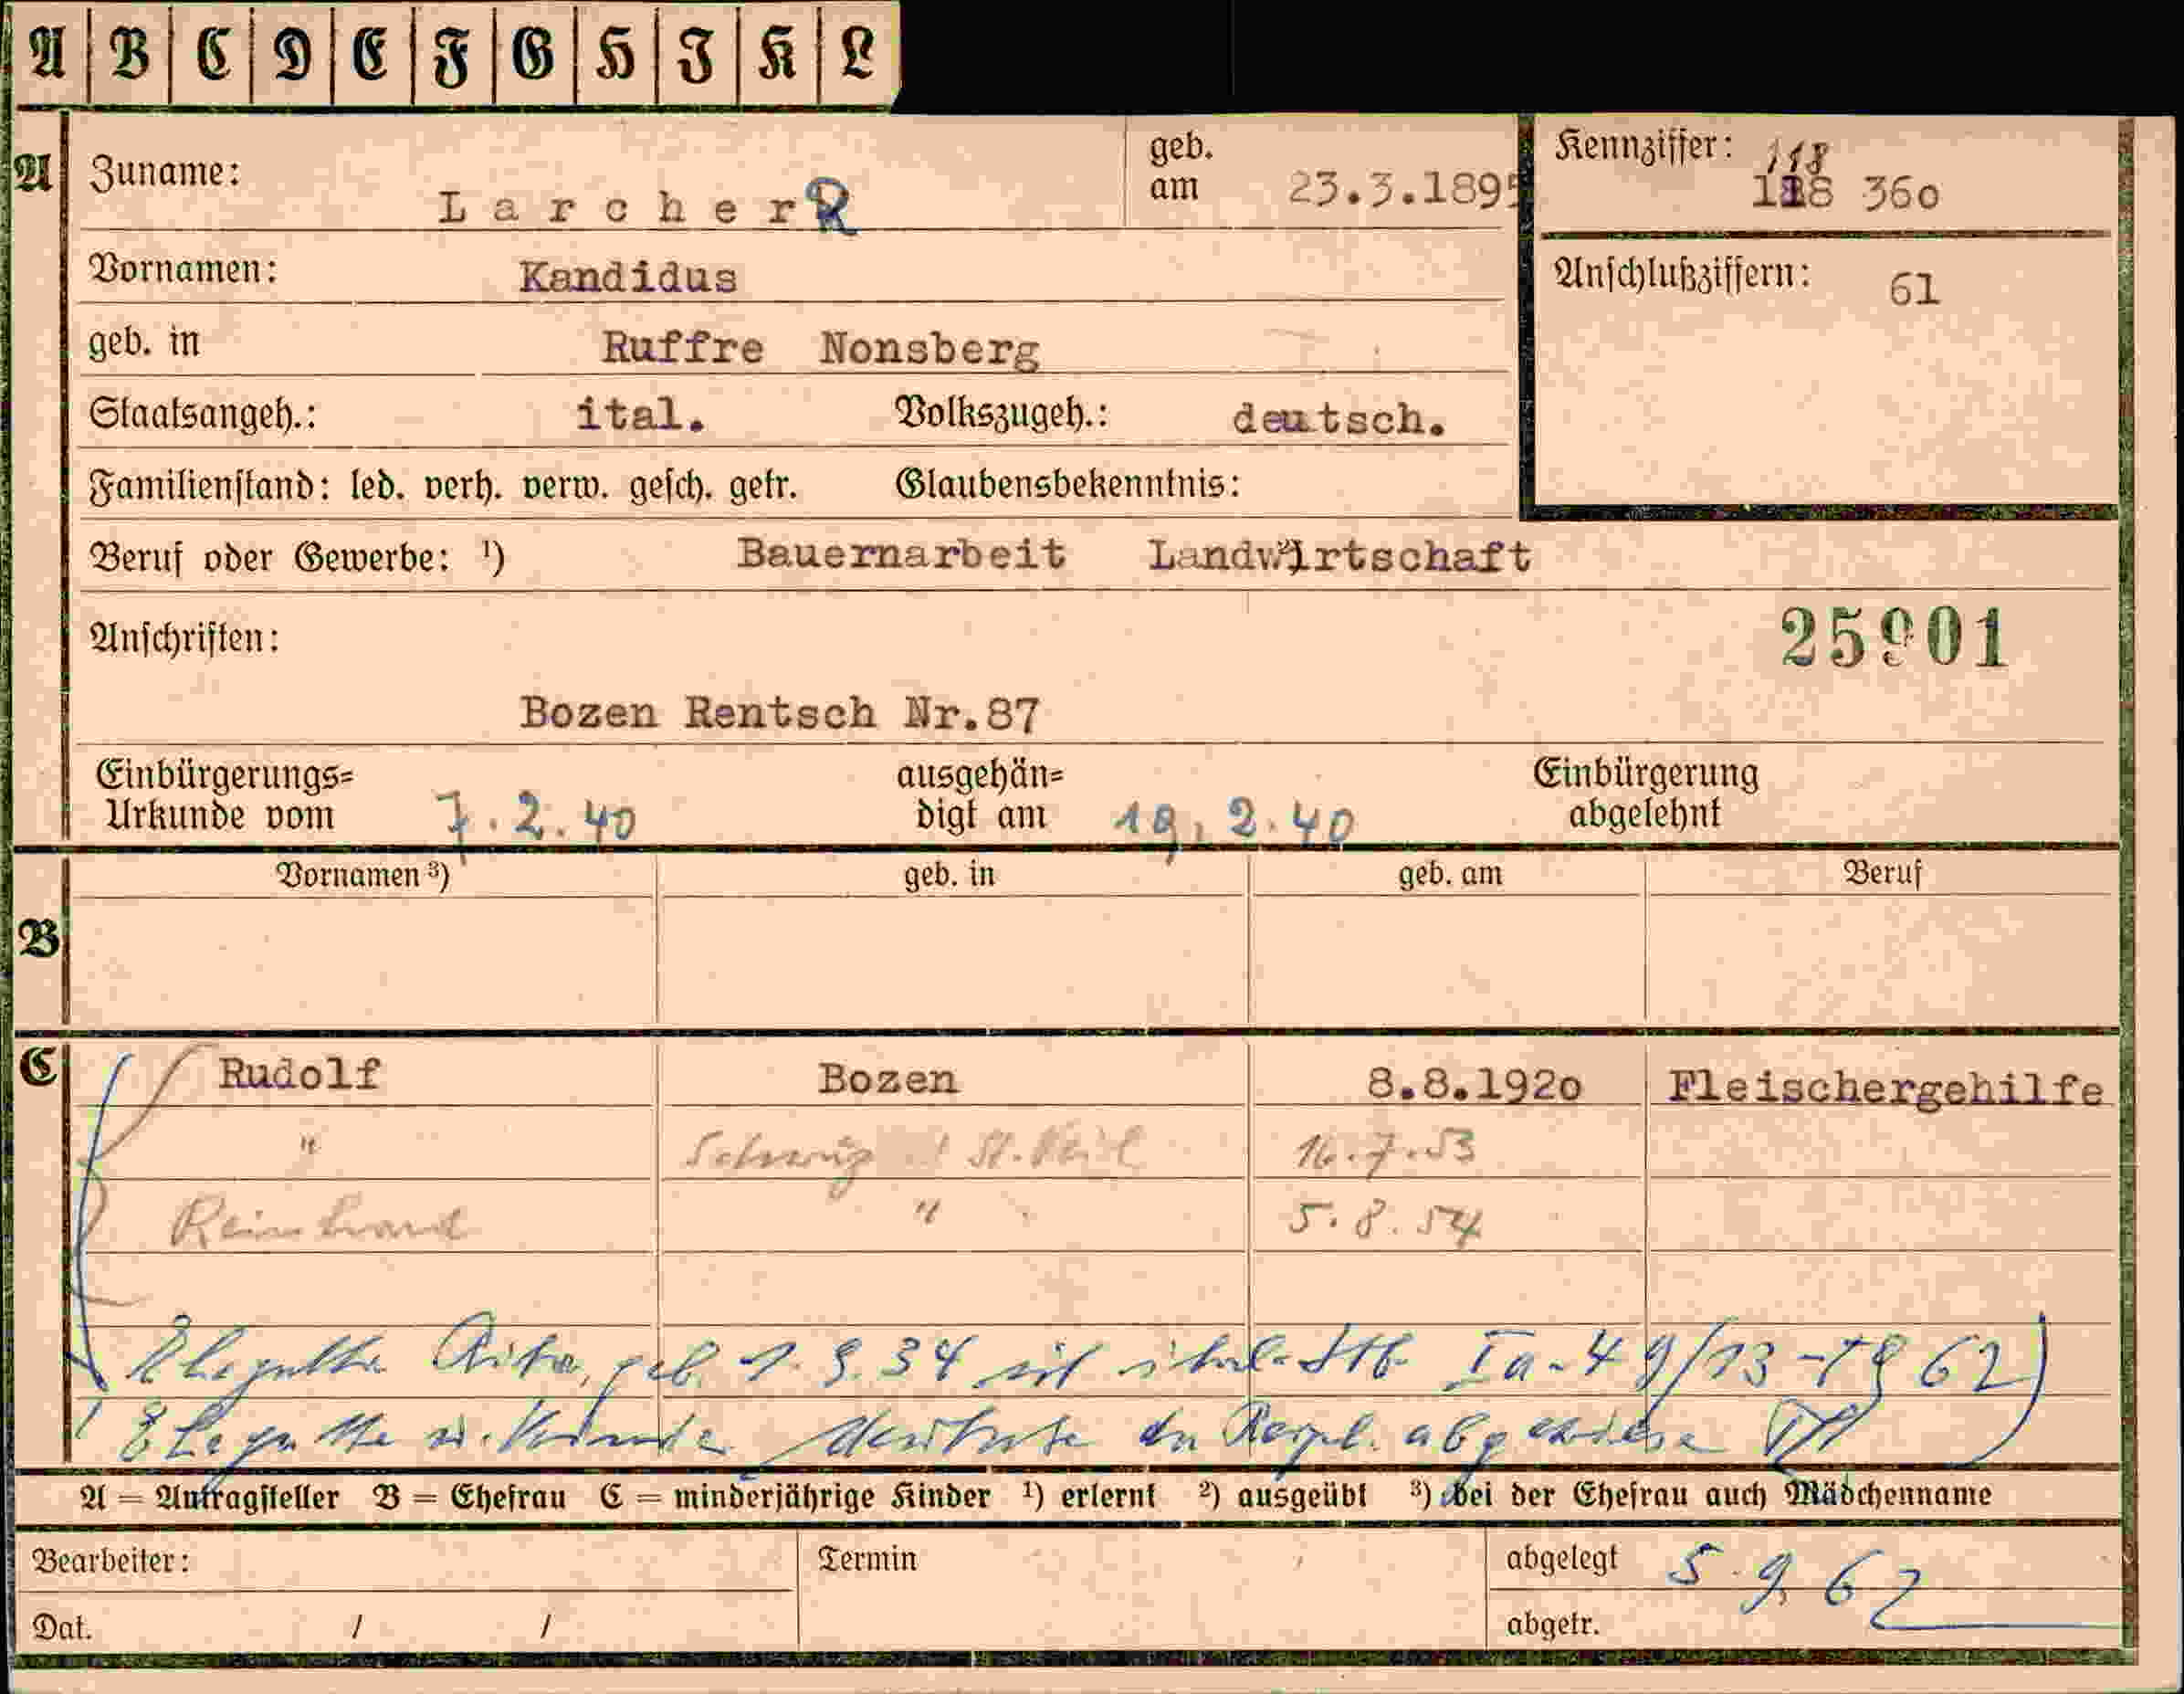 A B C D E F G H J K L
A Zuname: Larcher R geb. am 23.3.1895 Kennziffer: 118
118 360
Vornamen: Kandidus Anschlußziffern: 61
geb. in Ruffre Nonsberg
Staatsangeh.: ital. Volkszugeh.: deutsch.
Familienstand: led. verh. verw. gesch. getr. Glaubensbekenntnis:
Beruf oder Gewerbe: ¹) Bauernarbeit ²) Landwirtschaft
Anschriften: 25901
Bozen Rentsch Nr.87
Einbürgerungs= Urkunde vom 7.2.40 ausgehän= digt am 19.2.40 Einbürgerung abgelehnt
Vornamen ³) geb. in geb. am Beruf
B
C Rudolf Bozen 8.8.1920 Fleischergehilfe
" St. Veit 16.7.53
Reinhard " 5.8.54
Ehegattin Rita, geb. 1.9.34 mit ital. Stb. Ia-49/13- 62)
Ehegatte u. Kinder abgewiesen
A = Antragsteller B = Ehefrau C = minderjährige Kinder ¹) erlernt ²) ausgeübt ³) bei der Ehefrau auch Mädchenname
Bearbeiter: Termin abgelegt 5.9.62
Dat. / / abgetr.